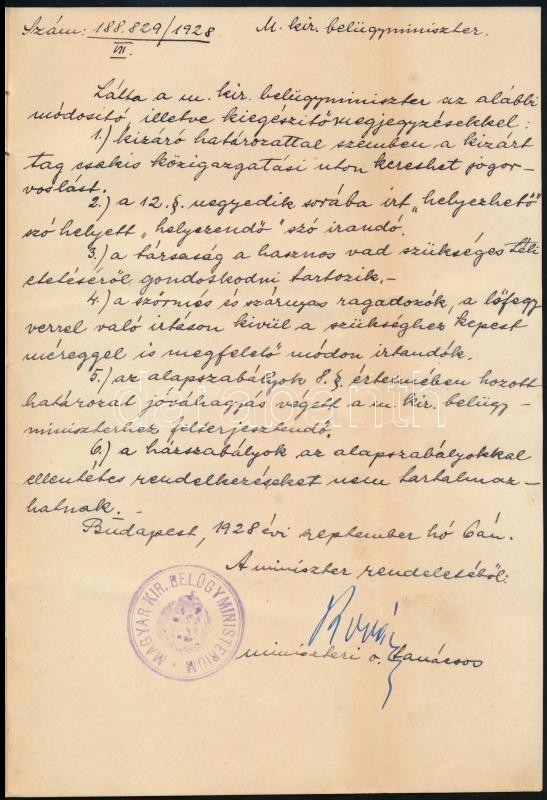 Szám: 188.829/1928 M. kir. belügyminiszter.
VII.
Látta a m. kir. belügyminiszter az alábbi
módositó, illetve kiegészitő megjegyzésekkel:
1.) kizáró határozattal szemben a kizárt
tag csakis közigazgatási uton kereshet jogor-
voslást.
2.) a 12. §. negyedik sorába irt „helyezhető"
szó helyett „helyezendő" szó irandó.
3.) a társaság a hasznos vad szükséges téli
etetéséről gondoskodni tartozik.-
4.) a szőrmés és szárnyas ragadozók, a lőfegy
verrel való irtáson kivül a szükséghez képest
méreggel is megfelelő módon irtandók.
5.) az alapszabályok 8. § értelmében hozott
határozat jóváhagyás végett a m. kir. belügy-
miniszterhez felterjesztendő.
6.) a házszabályok az alapszabályokkal
ellentétes rendelkezéseket nem tartalmaz-
hatnak. -
Budapest, 1928 évi szeptember hó 6án.
A miniszter rendeletéből:
miniszteri o. tanácsos
MAGYAR KIR. BELÜGYMINISTERIUM
darabanth